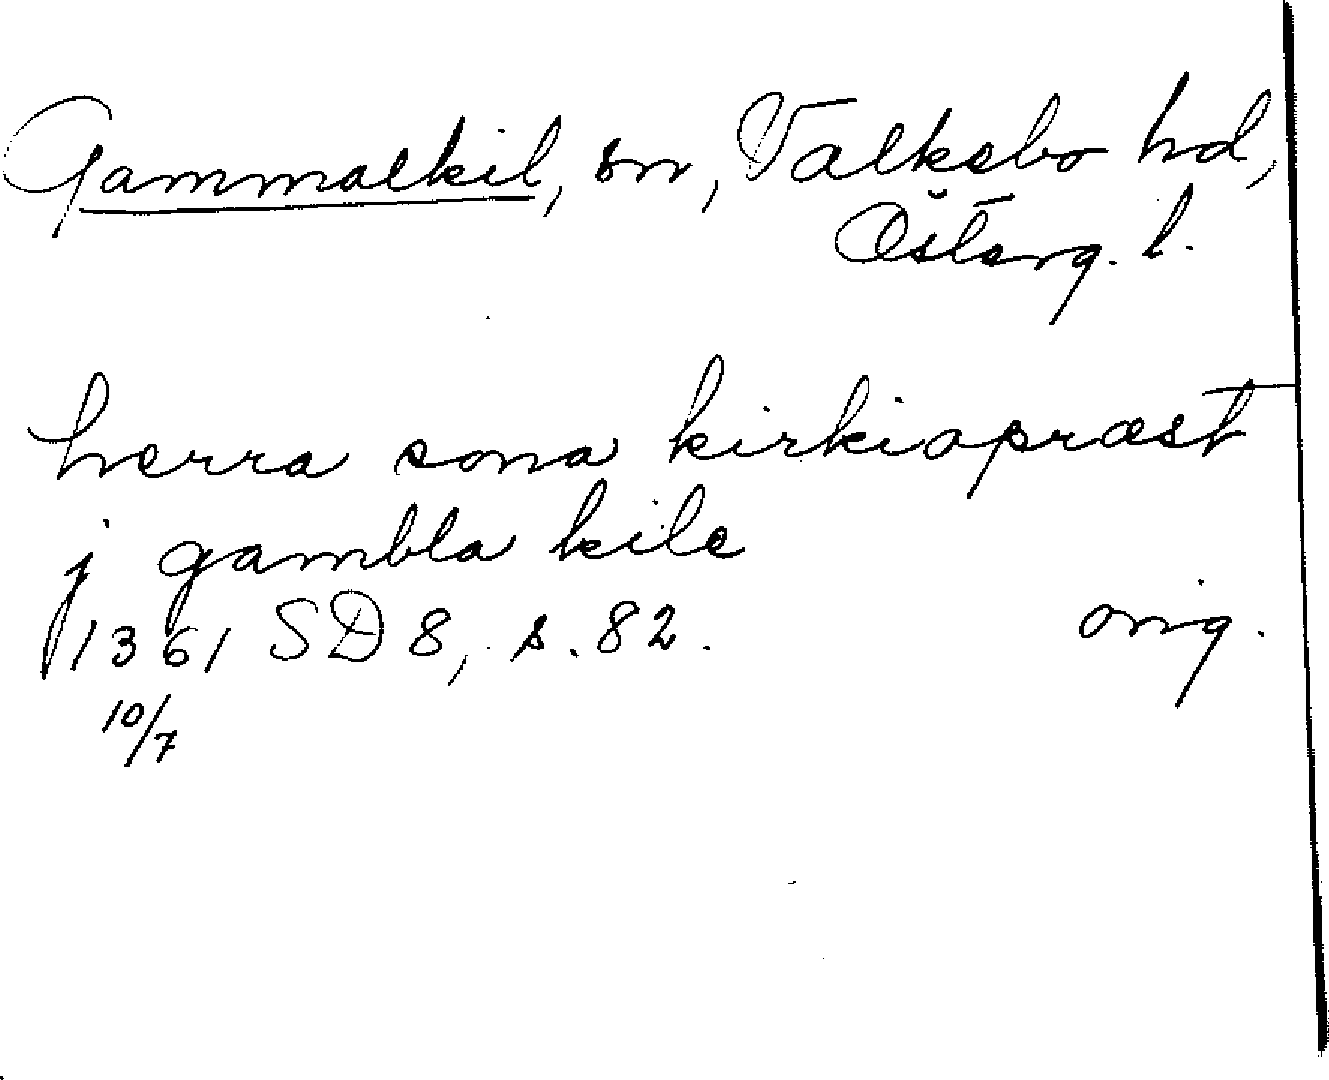 Gammalkil, sn, Valkebo hd,
Österg. l.
herra sona kirkiopræst
j gambla kile
1361 SD 8, s. 82. orig.
10/7